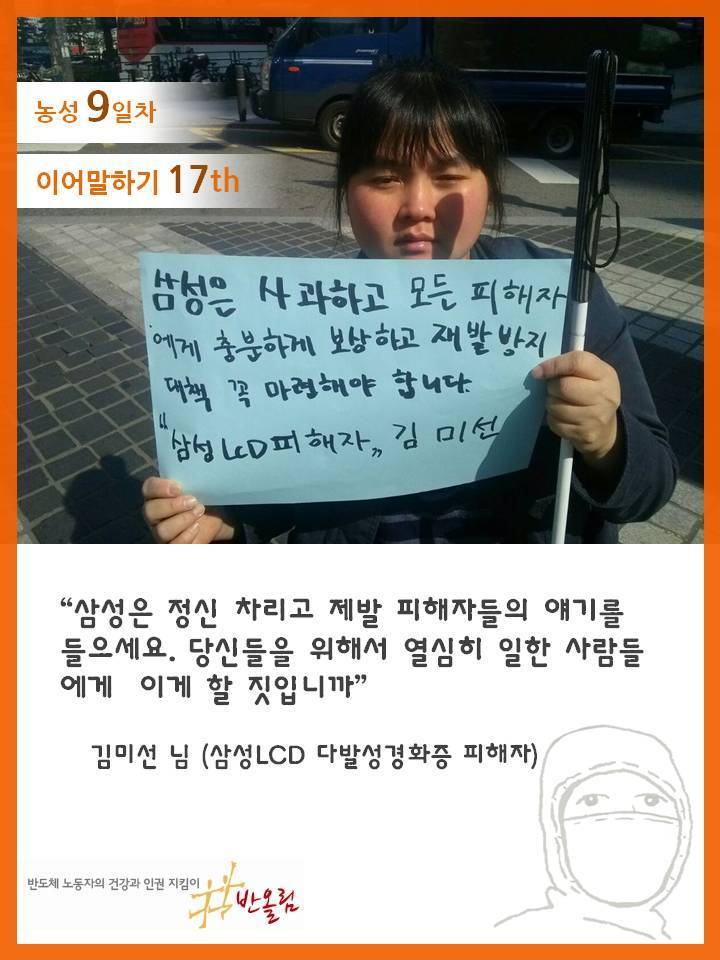 농성 9일차
이어말하기 17th
삼성은 사과하고 모든 피해자
에게 충분하게 보상하고 재발방지
대책 꼭 마련해야 합니다.
"삼성LCD피해자„ 김 미선
“삼성은 정신 차리고 제발 피해자들의 얘기를
들으세요. 당신들을 위해서 열심히 일한 사람들
에게 이게 할 짓입니까”
김미선 님 (삼성LCD 다발성경화증 피해자)
반도체 노동자의 건강과 인권 지킴이
반올림